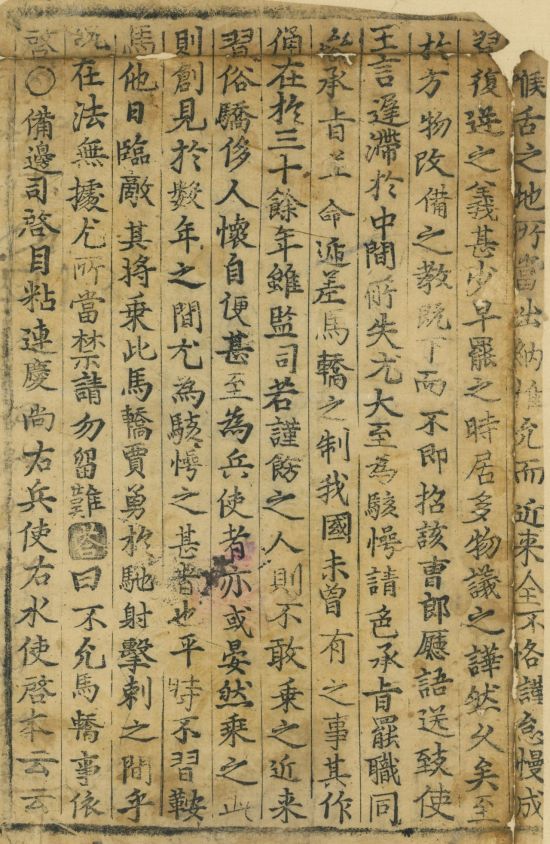 喉舌之地所當出納惟允而近來全不恪謹怠慢成
習復逆之義甚少早罷之時居多物議之譁然久矣至
於方物改備之敎旣下而不即招該曺郎廳語送致使
王言遲滯於中間所失尤大至爲駭愕請色承旨罷職同
承旨並命遞差馬轎之制我國未曾有之事其作
俑在於三十餘年雖監司若謹飭之人則不敢乘之近來
習俗驕侈人懷自便甚至爲兵使者亦或晏然乘之此
則創見於數年之間尤爲駭愕之甚者也平時不習鞍
馬他日臨敵其將乘此馬轎賈勇於馳射擊刺之間乎
況在法無據尤所當禁請勿留難答曰不允馬轎事依
啓○備邊司啓目粘連慶尙右兵使右水使啓本云云